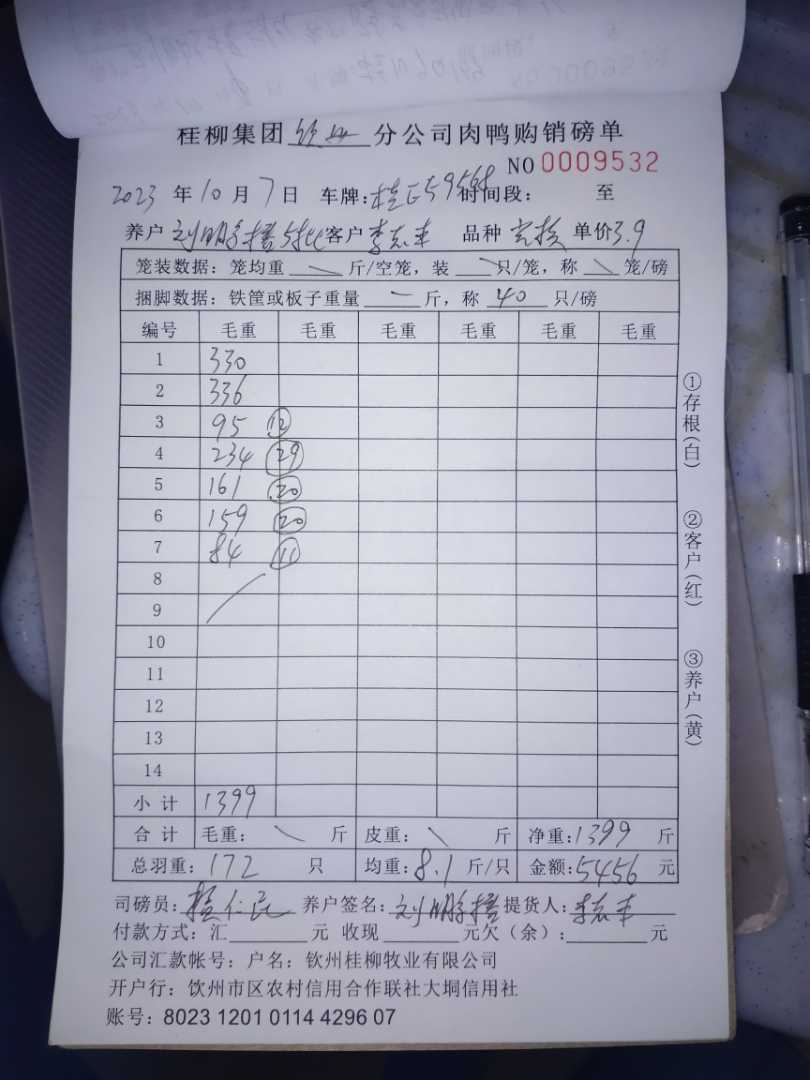 桂柳集团 钦州 分公司肉鸭购销磅单
NO 0009532
2023 年 10 月 7 日 车牌: 时间段: 至
养户 刘明 客户 李 品种 单价 3.9
笼装数据: 笼均重 斤/空笼, 装 只/笼, 称 笼/磅
捆脚数据: 铁筐或板子重量 一 斤, 称 40 只/磅
编号 毛重 毛重 毛重 毛重 毛重 毛重
1 330
2 336
3 95 12
4 234 29
5 161 20
6 159 20
7 84 11
8
9
10
11
12
13
14
小计 1399
合计 毛重: 斤 皮重: 斤 净重: 1399 斤
总羽重: 172 只 均重: 8.1 斤/只 金额: 5456 元
司磅员: 养户签名: 刘明 提货人: 李
付款方式: 汇 元 收现 元欠(余): 元
公司汇款帐号: 户名: 钦州桂柳牧业有限公司
开户行: 饮州市区农村信用合作联社大垌信用社
账号: 8023 1201 0114 4296 07
①存根(白)
②客户(红)
③养户(黄)